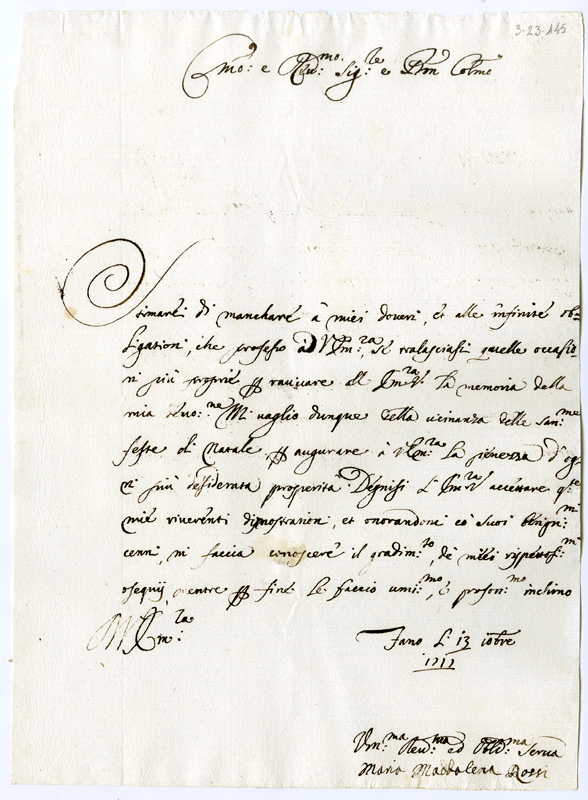 3-23-145
Emo: e Reu:mo Sig:re e Pron Colmo
Stimarei di manchare à miei doueri, et alle infinite ob=
ligationi, che professo à V Em:za, se tralasciassi quelle occasio
ni più proprie per rauiuare all Em:za V:ra la memoria della
mia deuo:ne Mi vaglio dunque della uicinanza delle San:me
feste di Natale per augurare à V Em:za la pienezza d'og
ni più desiderata prosperità Degnisi L' Em:za V:ra accettare q:te
mie riuerenti dimostrationi, et onorandomi co' suoi benign:mi
cenni, mi faccia conoscere il gradim:to, de miei rispettosi:mi
ossequij mentre per fine le faccio umi:mo, e profon:mo inchino
V Em:za
Fano Li 13 10bre
1711
Vm:ma Deu:ma ed Obbl:ma Serua
Maria Maddalena Rossi